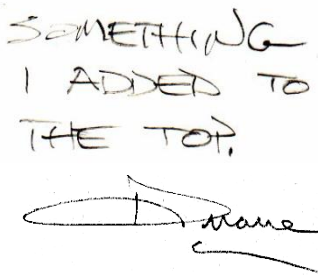 SOMETHING
I ADDED TO
THE TOP.
Duane